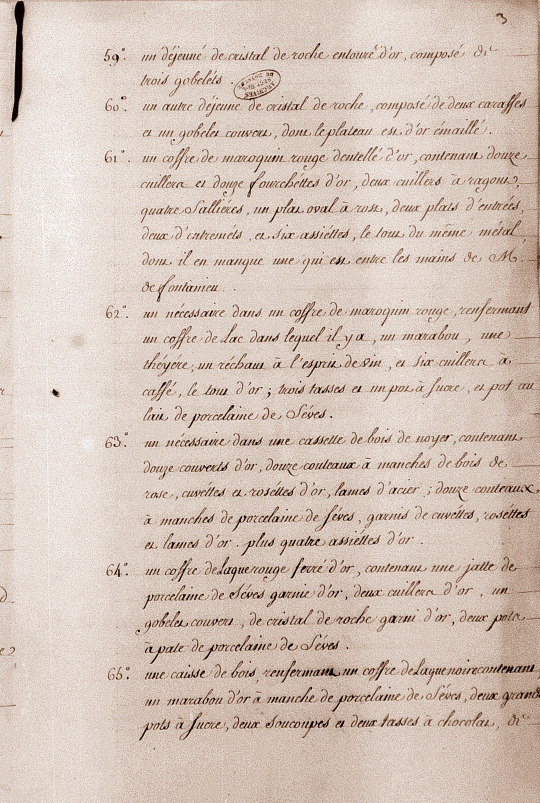 3
59°. un déjeuné de cristal de roche entouré d'or, composé de
trois gobeléts.
60°. un autre déjeuné de cristal de roche, composé de deux caraffes
et un gobelet couvert, dont le plateau est d'or émaillé.
61°. un coffre de maroquin rouge dentellé d'or, contenant douze
cuillers et douze fourchéttes d'or, deux cuillers à ragout,
quatre Salliéres, un plat oval à rost, deux plats d'entrées,
deux d'entreméts, et six assiéttes, le tout du même métal
dont il en manque une qui est entre les mains de M.
de fontanieu.
62°. un nécessaire dans un coffre de maroquin rouge, renfermant
un coffre de Lac dans lequel il y a, un marabou, une
théyére, un réchaux à l'esprit de vin, et six cuillers à
caffé, le tout d'or; trois tasses et un pot à Sucre, et pot au
lait de porcelaine de Séves.
63°. un nécessaire dans une cassette de bois de noyer, contenant
douze couverts d'or, douze couteaux à manches de bois de
rose, cuvéttes et roséttes d'or, lames d'acier; douze couteaux
à manches de porcelaine de Séves, garnis de cuvéttes, roséttes
et lames d'or. plus quatre assiéttes d'or.
64°. un coffre de Laque rouge ferré d'or, contenant une jatte de
porcelaine de Séves garnie d'or, deux cuillers d'or, un
gobelet couvert, de cristal de roche garni d'or, deux pots
à pate de porcelaine de Séves.
65°. une caisse de bois, renfermant un coffre de Laque noire contenant
un marabou d'or à manche de porcelaine de Séves, deux grands
pots à Sucre, deux Soucoupes et deux tasses à chocolat, de